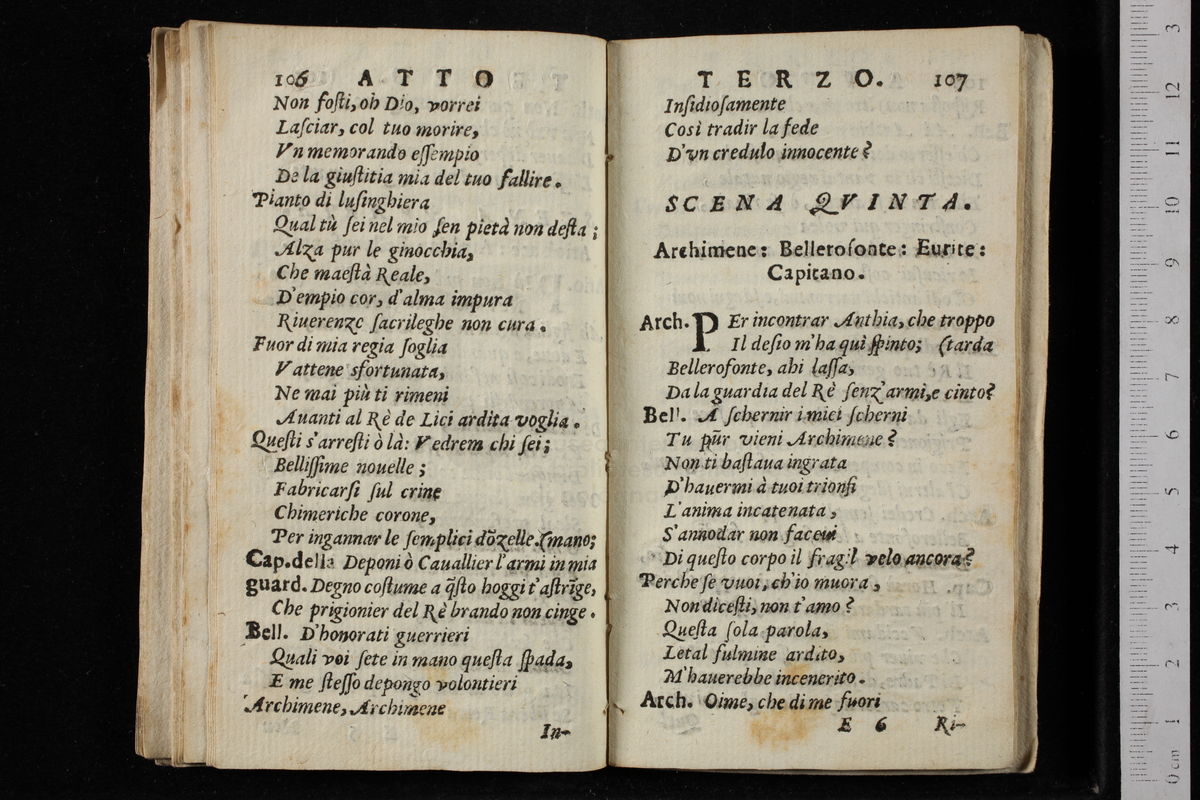 106 ATTO
Non foſti, oh Dio, vorrei
Laſciar, col tuo morire,
Vn memorando eſſempio
De la giuſtitia mia del tuo fallire.
Pianto di luſinghiera
Qual tù ſei nel mio ſen pietà non deſta;
Alza pur le ginocchia,
Che maeſtà Reale,
D'empio cor, d'alma impura
Riuerenze ſacrileghe non cura.
Fuor di mia regia ſoglia
Vattene sfortunata,
Ne mai più ti rimeni
Auanti al Rè de Lici ardita voglia.
Queſti s'arreſti ò là: Vedrem chi ſei;
Belliſſime nouelle;
Fabricarſi ſul crine
Chimeriche corone,
Per ingannar le ſemplici dõzelle. (mano;
Cap. della Deponi ò Cauallier l'armi in mia
guard. Degno coſtume a q̃ſto hoggi t'aſtrīge,
Che prigionier del Rè brando non cinge.
Bell. D'honorati guerrieri
Quali voi ſete in mano queſta ſpada,
E me ſteſſo depongo volontieri
Archimene, Archimene
In-
TERZO. 107
Inſidioſamente
Così tradir la fede
D'vn credulo innocente?
SCENA QVINTA.
Archimene: Bellerofonte: Eurite:
Capitano.
Arch. PEr incontrar Anthia, che troppo
Il deſio m'ha quì ſpinto; (tarda
Bellerofonte, ahi laſſa,
Da la guardia del Rè ſenz'armi, e cinto?
Bell. A ſchernir i miei ſcherni
Tu pūr vieni Archimene?
Non ti baſtaua ingrata
D'hauermi à tuoi trionfi
L'anima incatenata,
S'annodar non faceui
Di queſto corpo il fragil velo ancora?
Perche ſe vuoi, ch'io muora,
Non diceſti, non t'amo?
Queſta ſola parola,
Letal fulmine ardito,
M'hauerebbe incenerito.
Arch. Oime, che di me fuori
E 6 Ri-
0 cm 1 2 3 4 5 6 7 8 9 10 11 12 3